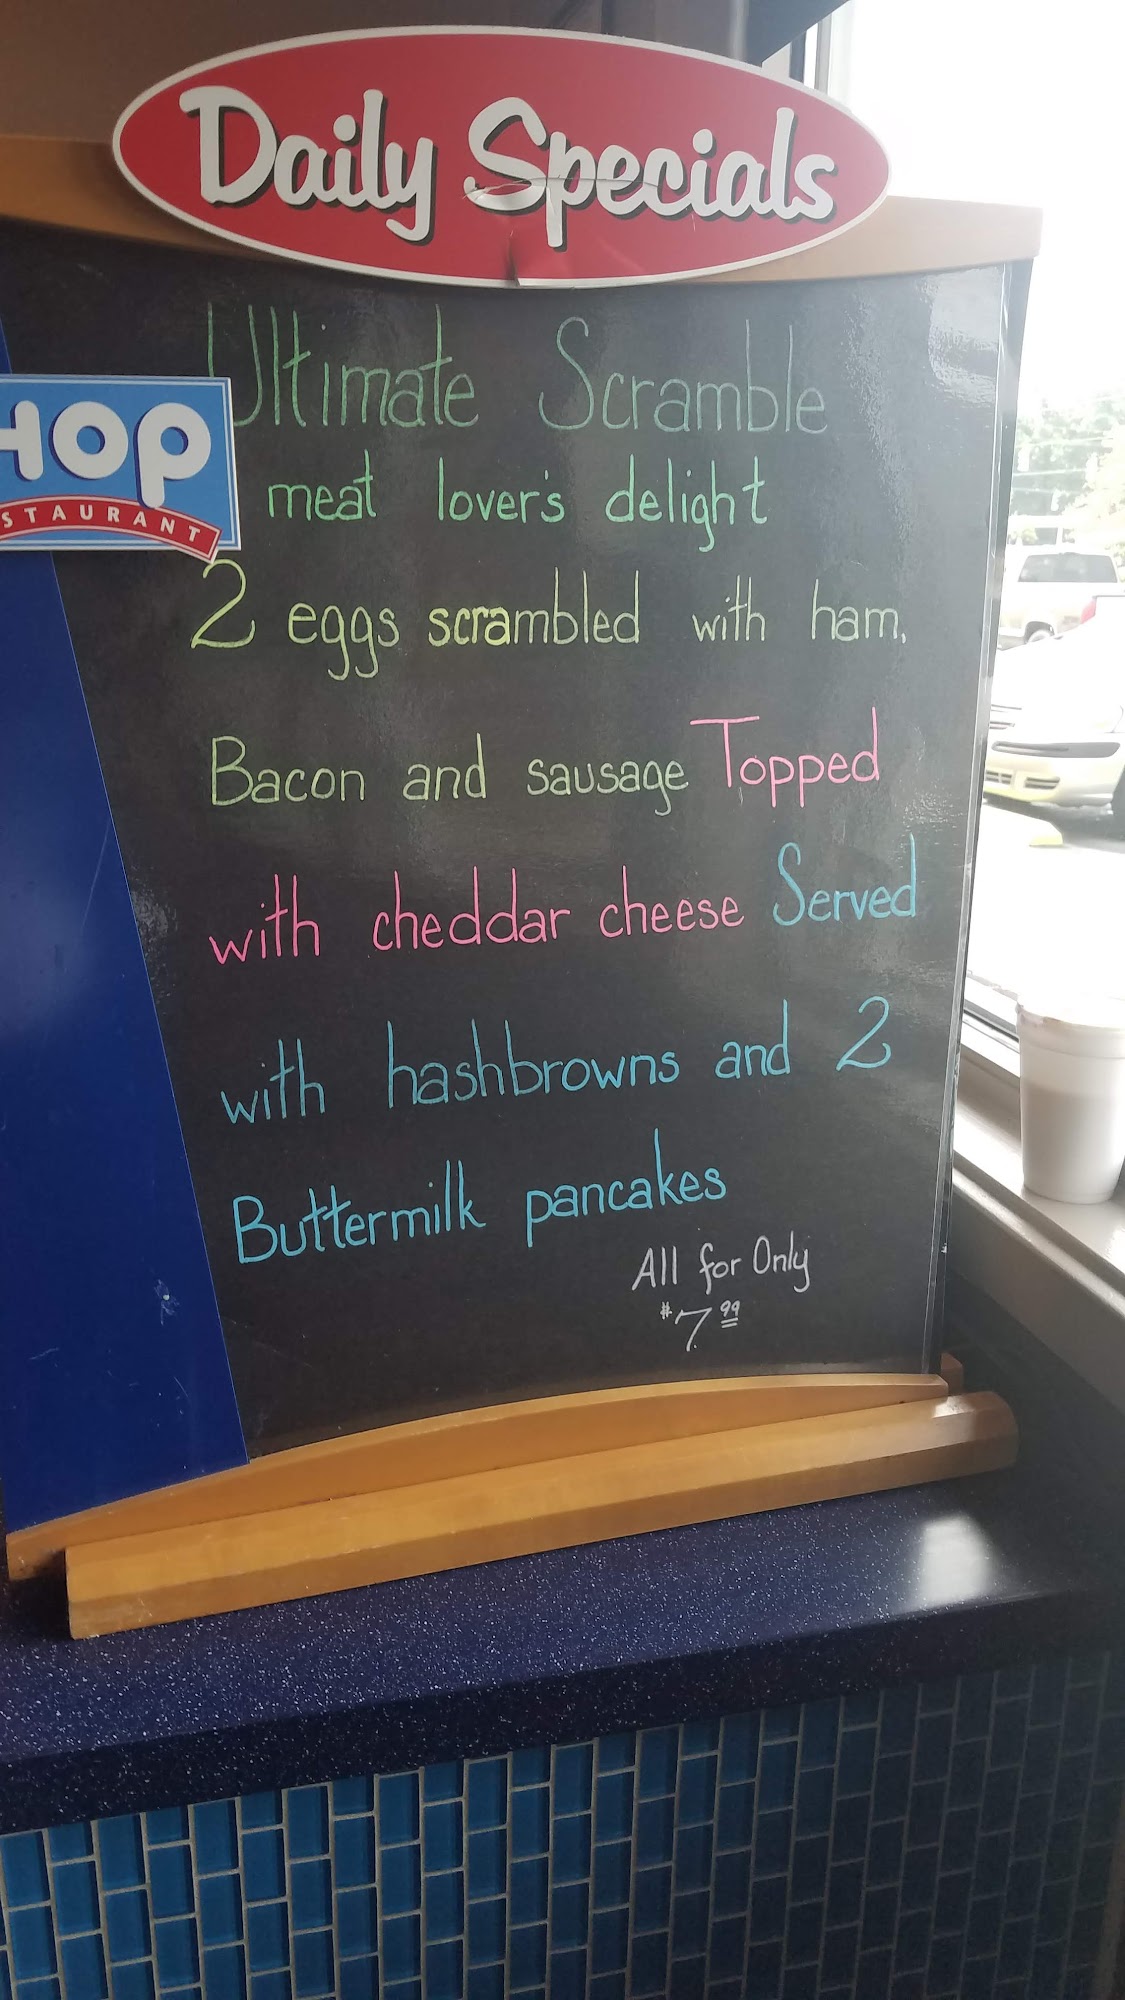 Daily Specials
Ultimate Scramble
HOP
STAURANT
meat lover's delight
2 eggs scrambled with ham,
Bacon and sausage Topped
with cheddar cheese Served
with hashbrowns and 2
Buttermilk pancakes
All for Only
$7.99